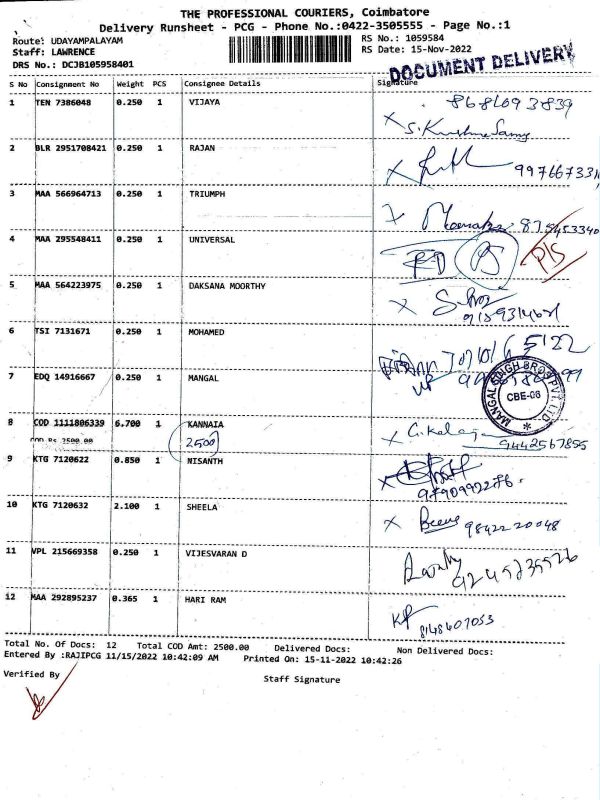 THE PROFESSIONAL COURIERS, Coimbatore
Delivery Runsheet - PCG - Phone No.:0422-3505555 - Page No.:1
Route: UDAYAMPALAYAM RS No.: 1059584
Staff: LAWRENCE RS Date: 15-Nov-2022
DRS No.: DCJB105958401 DOCUMENT DELIVERY
S No Consignment No Weight PCS Consignee Details Signature
1 TEN 7386048 0.250 1 VIJAYA
2 BLR 2951708421 0.250 1 RAJAN
3 MAA 566964713 0.250 1 TRIUMPH
4 MAA 295548411 0.250 1 UNIVERSAL
5 MAA 564223975 0.250 1 DAKSANA MOORTHY
6 TSI 7131671 0.250 1 MOHAMED
7 EDQ 14916667 0.250 1 MANGAL
MANGAL SINGH BROS PVT. LTD.
CBE-06
8 COD 1111806339 6.700 1 KANNAIA
COD Rs 2500.00 2500
9442567855
9 KTG 7120622 0.850 1 NISANTH
10 KTG 7120632 2.100 1 SHEELA
9842220048
11 VPL 215669358 0.250 1 VIJESVARAN D
12 MAA 292895237 0.365 1 HARI RAM
8148607053
Total No. Of Docs: 12 Total COD Amt: 2500.00 Delivered Docs: Non Delivered Docs:
Entered By :RAJIPCG 11/15/2022 10:42:09 AM Printed On: 15-11-2022 10:42:26
Verified By Staff Signature